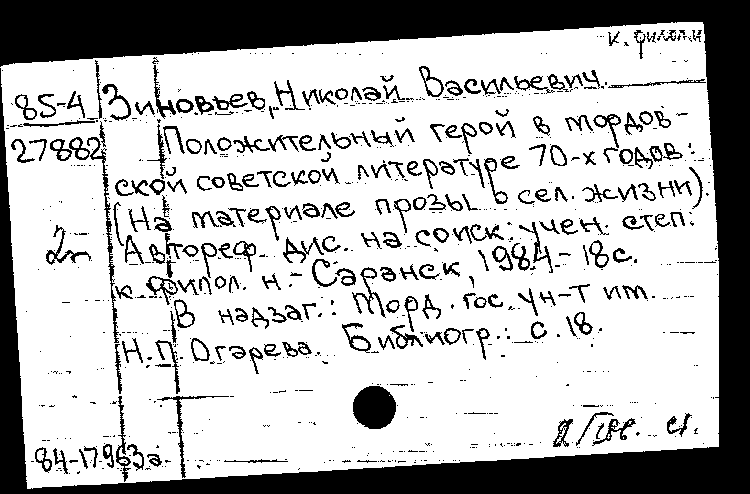 к. филол. н
85-4 Зиновьев, Николай Васильевич.
27882 Положительный герой в мордов-
ской советской литературе 70-х годов:
(На материале прозы о сел. жизни).
2п Автореф. дис. на соиск. учен. степ.
к. филол. н. - Саранск, 1984. - 18 с.
В надзаг.: Морд. гос. ун-т им.
Н.П. Огарева. Библиогр.: с. 18.
84-17963а